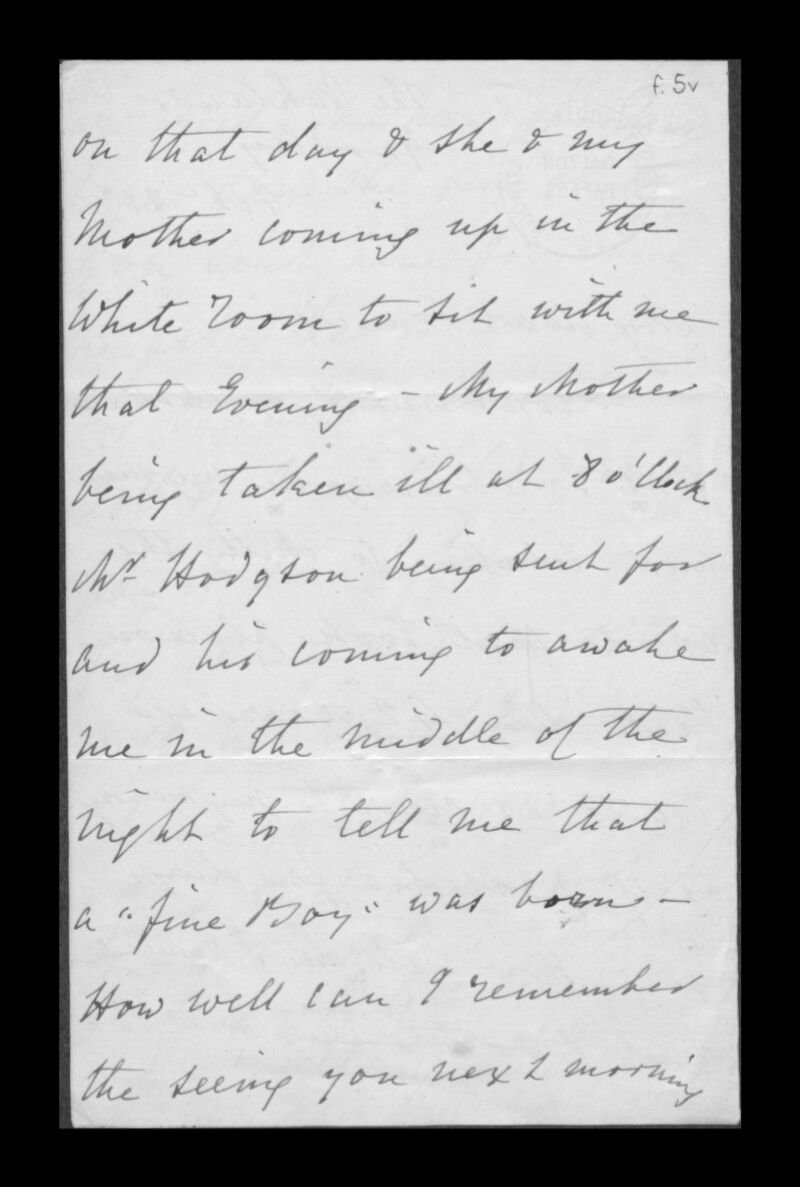 f. 5v
on that day & she & my
Mother coming up in the
White Room to sit with me
that Evening – My Mother
being taken ill at 8 o'Clock
Mr Hodgson being sent for
and his coming to awake
me in the middle of the
night to tell me that
a "fine Boy" was born –
How well can I remember
the seeing you next morning